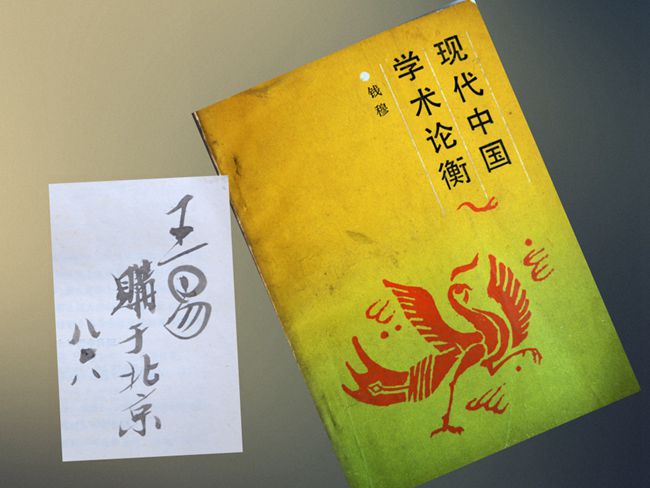 现代中国
学术论衡
钱穆
王易
購于北京
八六